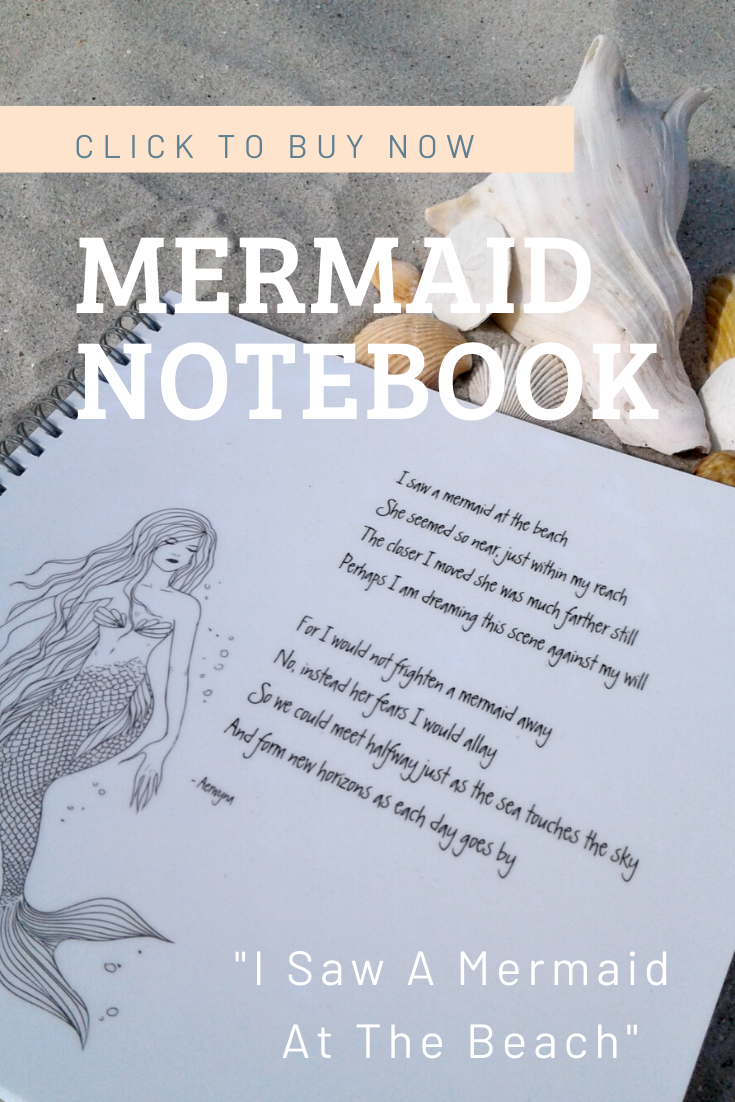 CLICK TO BUY NOW
MERMAID
NOTEBOOK
I saw a mermaid at the beach
She seemed so near, just within my reach
The closer I moved she was much farther still
Perhaps I am dreaming this scene against my will
For I would not frighten a mermaid away
No, instead her fears I would allay
So we could meet halfway just as the sea touches the sky
And form new horizons as each day goes by
- Aernyna
"I Saw A Mermaid
At The Beach"